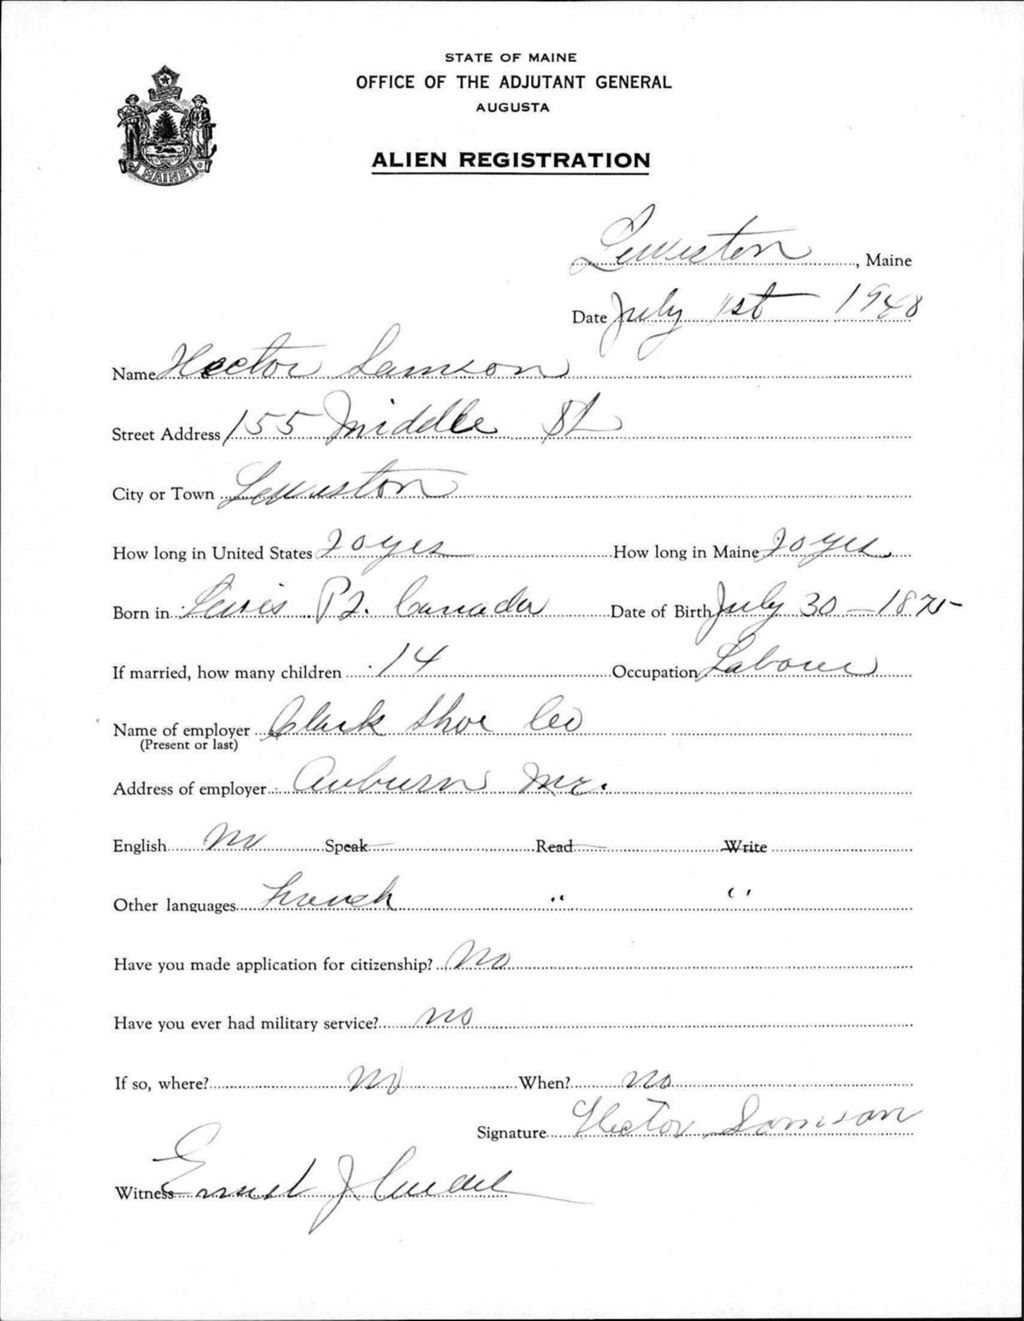 STATE OF MAINE
OFFICE OF THE ADJUTANT GENERAL
AUGUSTA
MAINE
ALIEN REGISTRATION
Lewiston, Maine
Date July 1st 1940
Name Hector Samson
Street Address 155 Middle St
City or Town Lewiston
How long in United States 20 yrs How long in Maine 20 yrs
Born in Levis P2. Canada Date of Birth July 30 - 1875
If married, how many children 14 Occupation Labourer
Name of employer Clark Shoe Co
(Present or last)
Address of employer Auburn Me.
English No Speak Read Write
Other languages French " "
Have you made application for citizenship? No
Have you ever had military service? no
If so, where? no When? no
Signature Hector Samson
Witness Ernest J